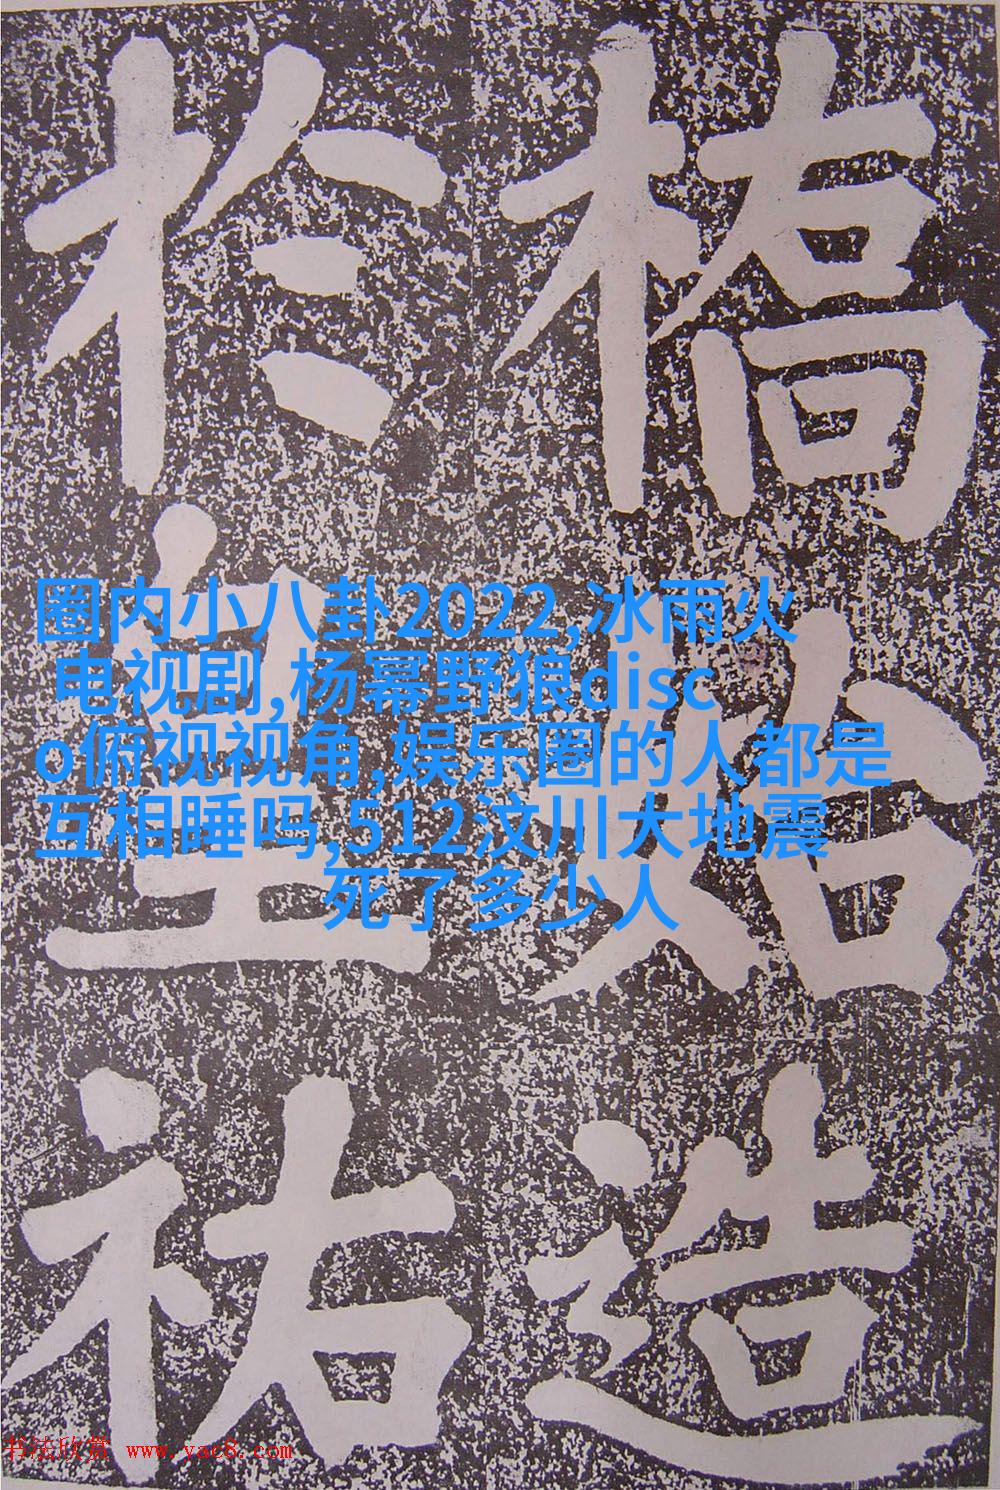 橋始造
於皇祐
圈内小八卦2022,冰雨火
电视剧,杨幂野狼disc
o俯视视角,娱乐圈的人都是
互相睡吗,512汶川大地震
死了多少人
书法欣赏 www.yac8.com